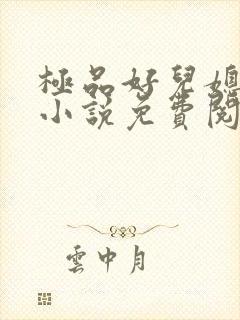 極品好兒媳
小說免費閱
雲中月